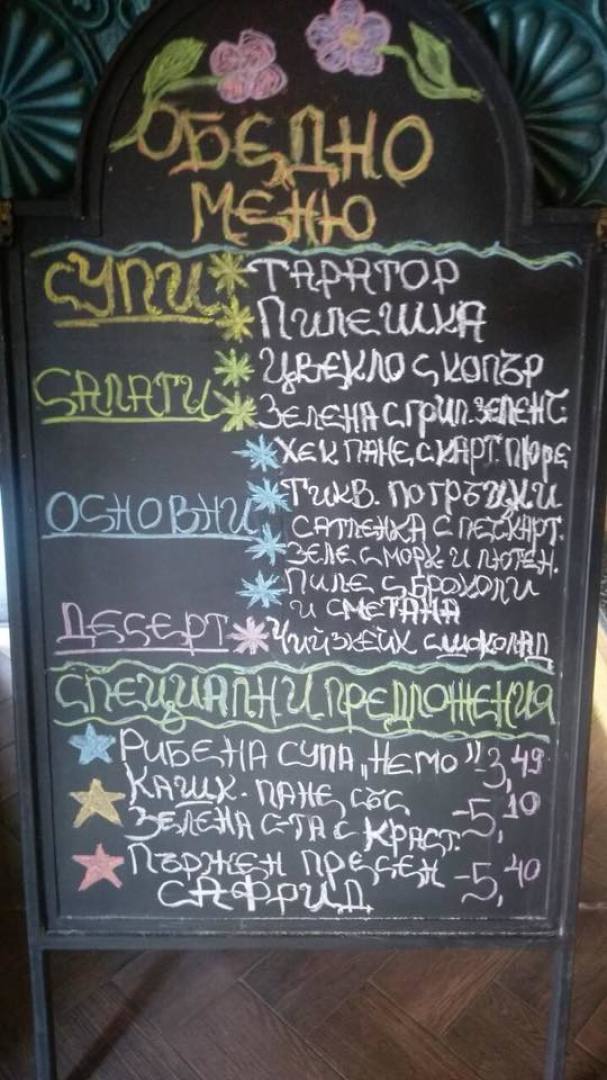 ОБЕДНО
МЕНЮ
СУПИ * ТАРАТОР
* ПИЛЕШКА
САЛАТИ * ЦВЕКЛО С КОПЪР
* ЗЕЛЕНА С ГРИЛ. ЗЕЛЕНЧ.
* ХЕК ПАНЕ С КАРТ. ПЮРЕ
ОСНОВНИ * ТИКВ. ПО ГРЪЦКИ
САТЛЕНКА С ПЕС. КАРТ.
* ЗЕЛЕ С МОРК. И ЛЮТЕН.
* ПИЛЕ С БРОКОЛИ
И СМЕТАНА
ДЕСЕРТ * ЧИЙЗКЕЙК С ШОКОЛАД
СПЕЦИАЛНИ ПРЕДЛОЖЕНИЯ
РИБЕНА СУПА „НЕМО" - 3,49
КАШК. ПАНЕ СЪС - 5,10
ЗЕЛЕНА С-ТА С КРАСТ.
ПЪРЖЕН ПРЕСЕН - 5,40
САФРИД